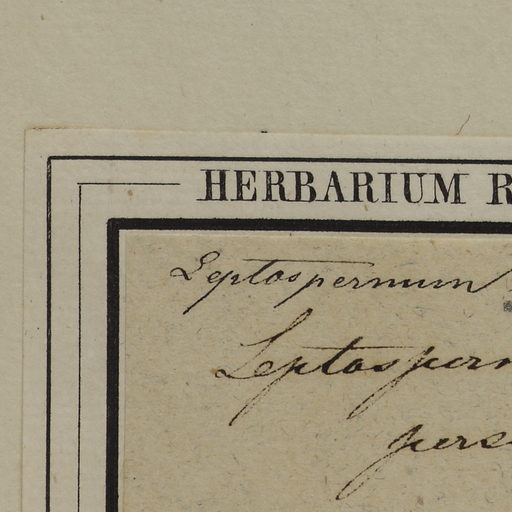 HERBARIUM R
Leptospernum
Leptospern
pers